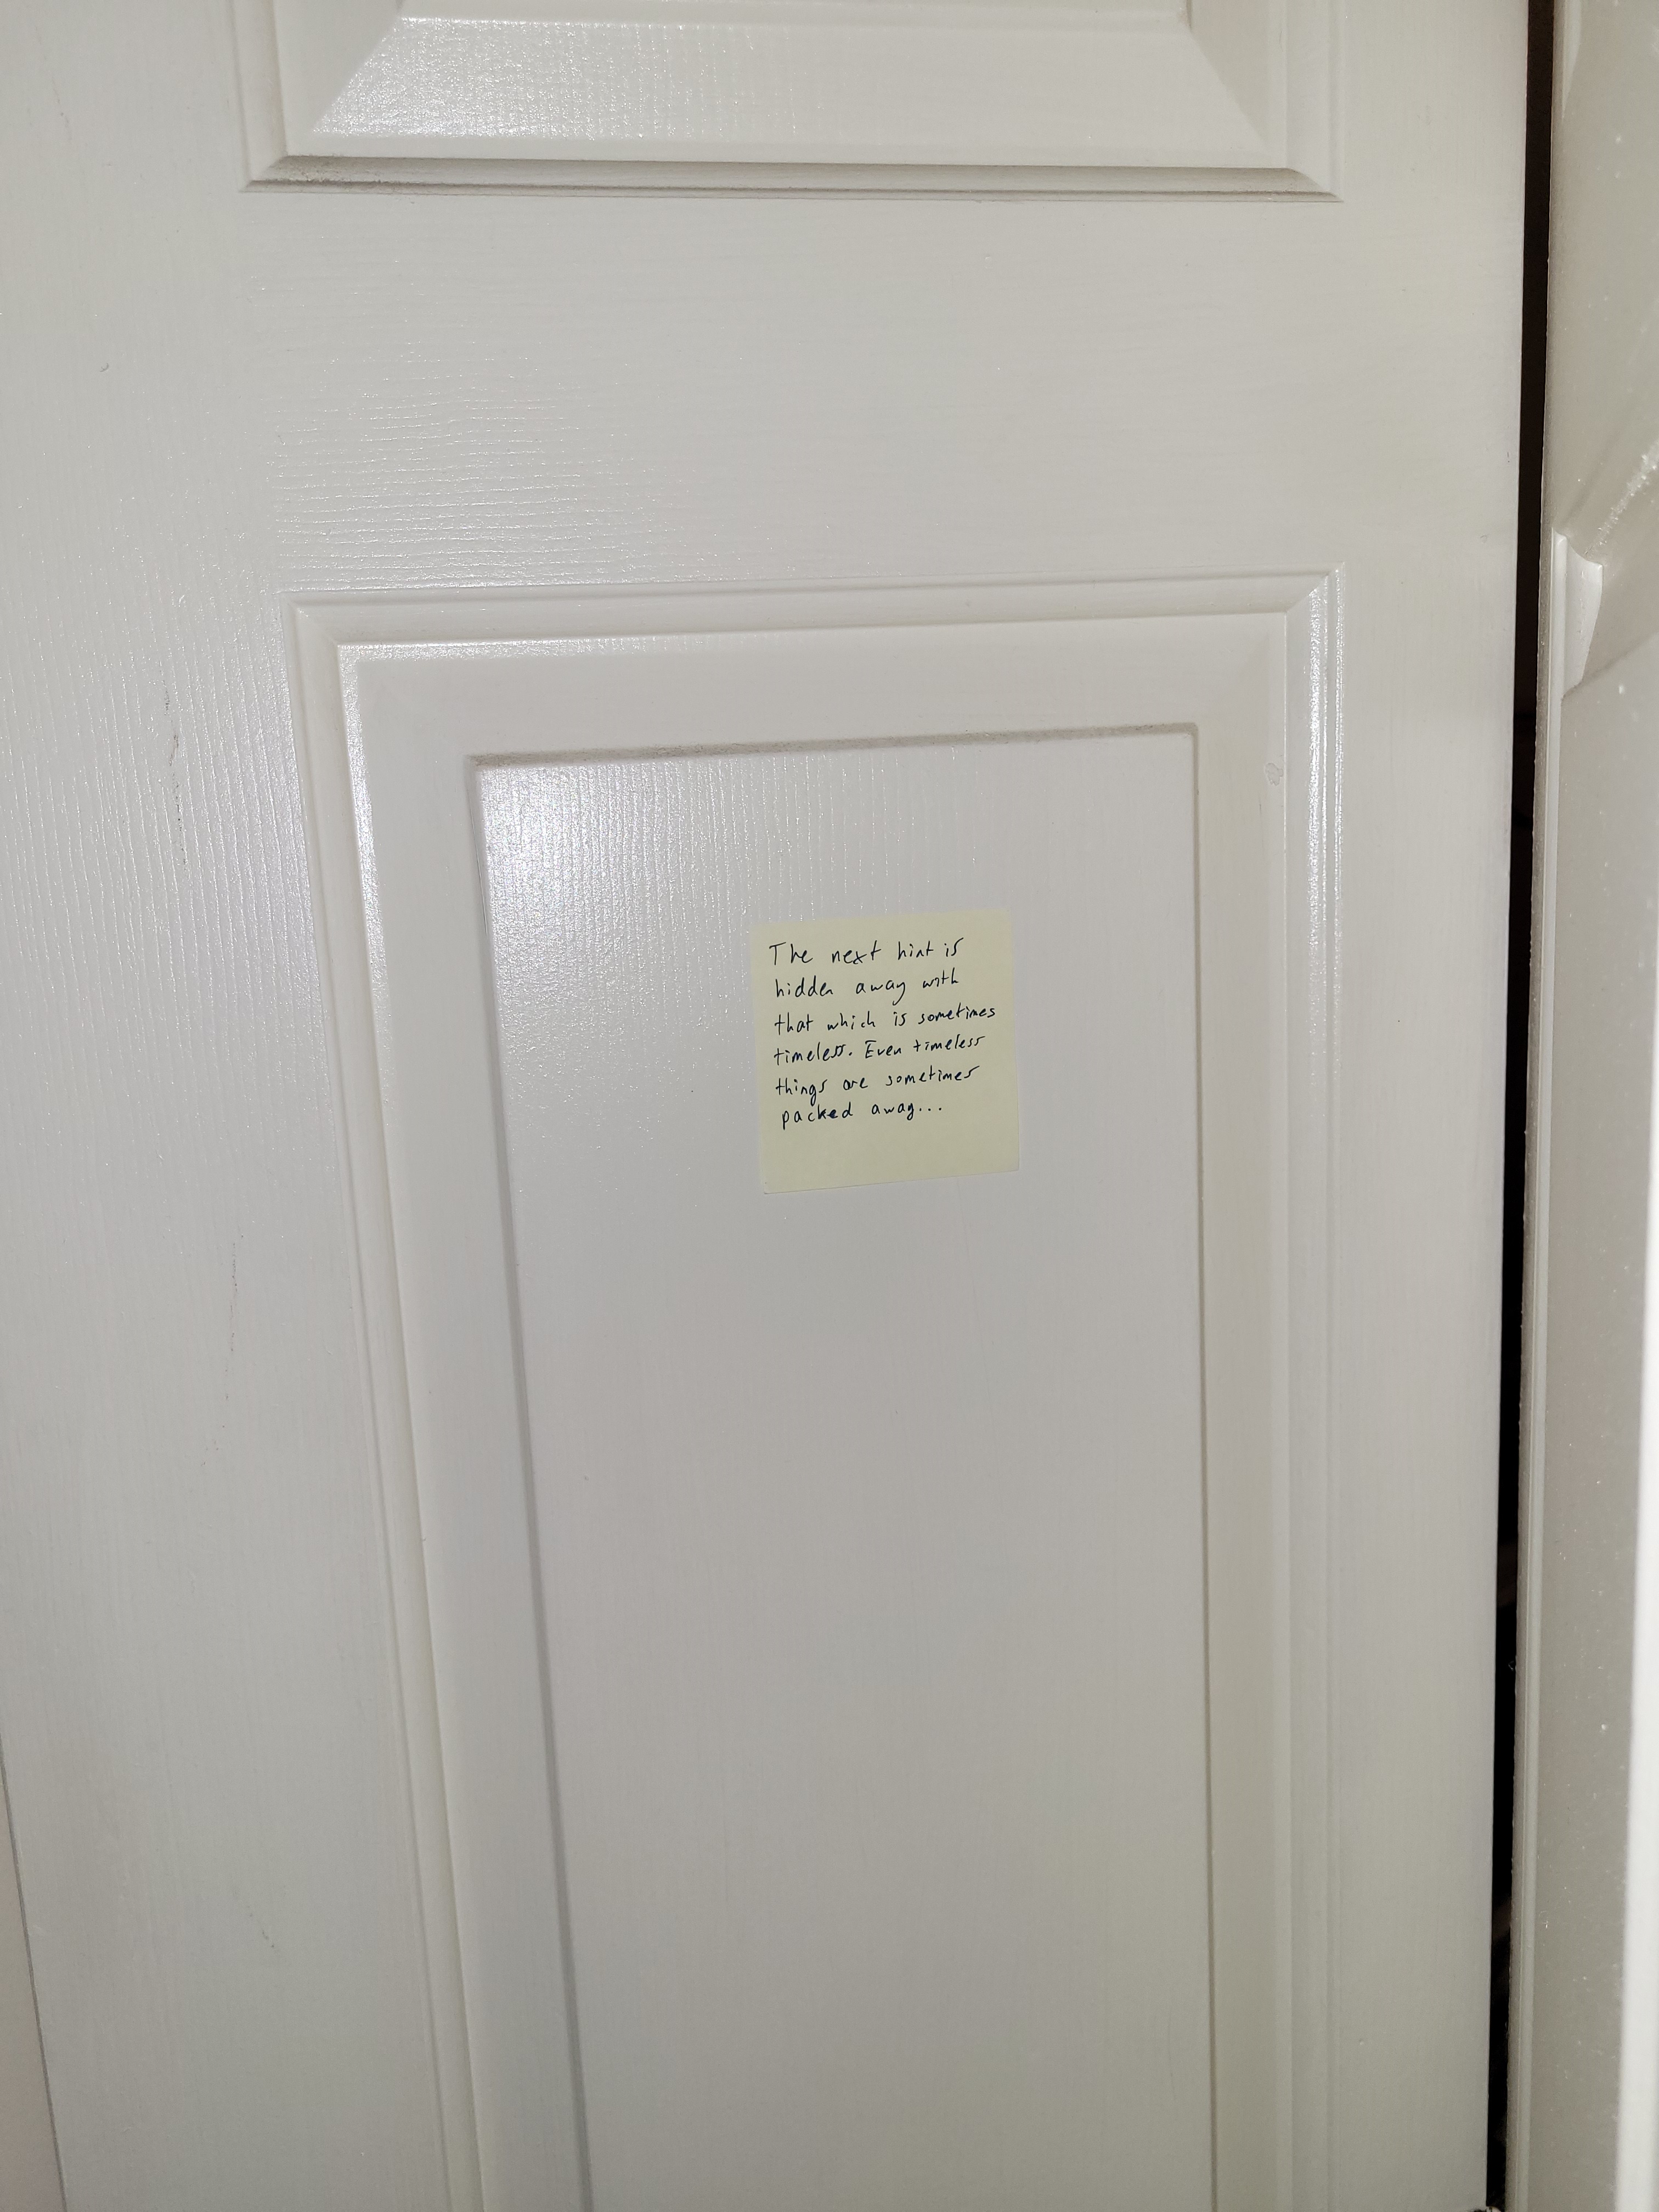 The next hint is
hidden away with
that which is sometimes
timeless. Even timeless
things are sometimes
packed away...